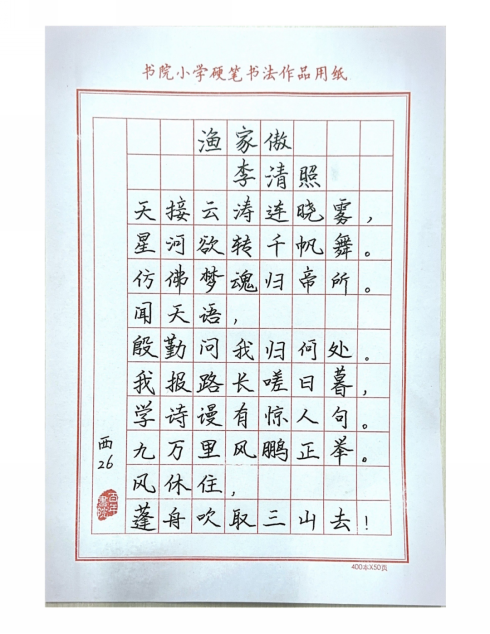 书院小学硬笔书法作品用纸
渔家傲
李清照
天接云涛连晓雾，
星河欲转千帆舞。
仿佛梦魂归帝所。
闻天语，
殷勤问我归何处。
我报路长嗟日暮，
学诗谩有惊人句。
九万里风鹏正举。
风休住，
蓬舟吹取三山去！
西
26
百年
書院
400本X50页